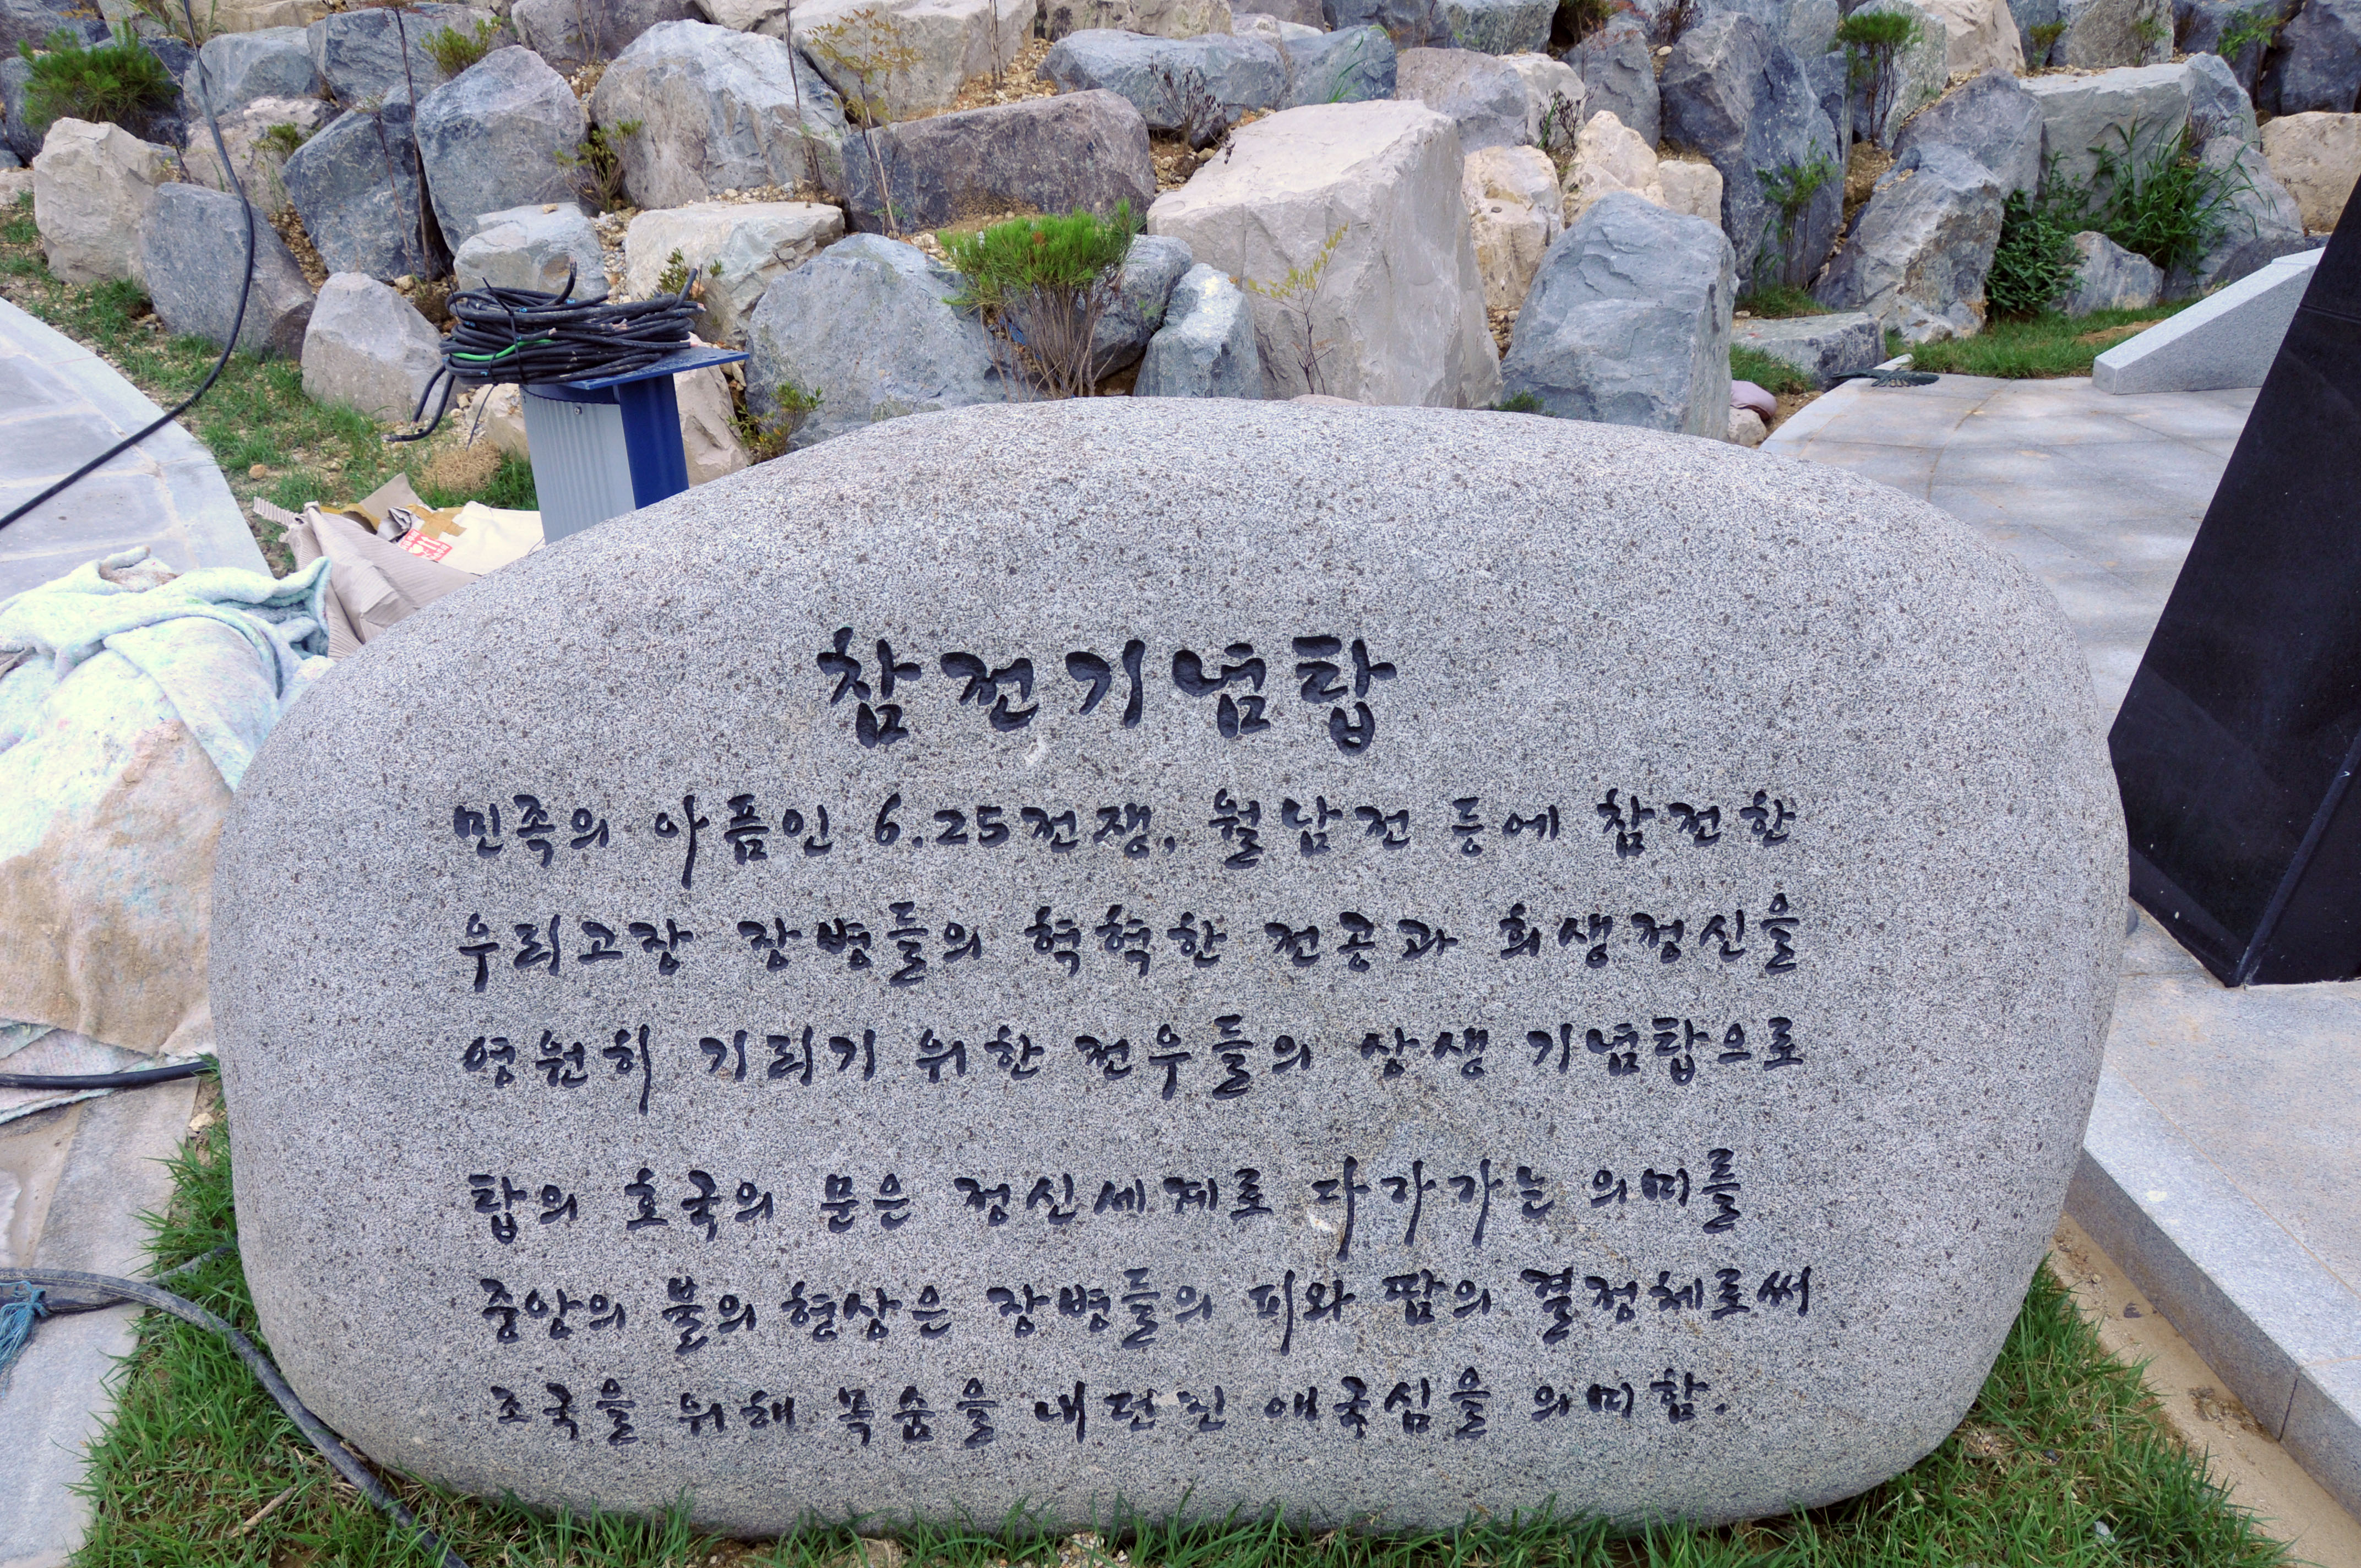 참전기념탑
민족의 아픔인 6.25전쟁, 월남전 등에 참전한
우리고장 장병들의 혁혁한 전공과 희생정신을
영원히 기리기 위한 전우들의 상생 기념탑으로
탑의 호국의 문은 정신세계로 다가가는 의미를
중앙의 불의 형상은 장병들의 피와 땀의 결정체로써
조국을 위해 목숨을 내던진 애국심을 의미함.